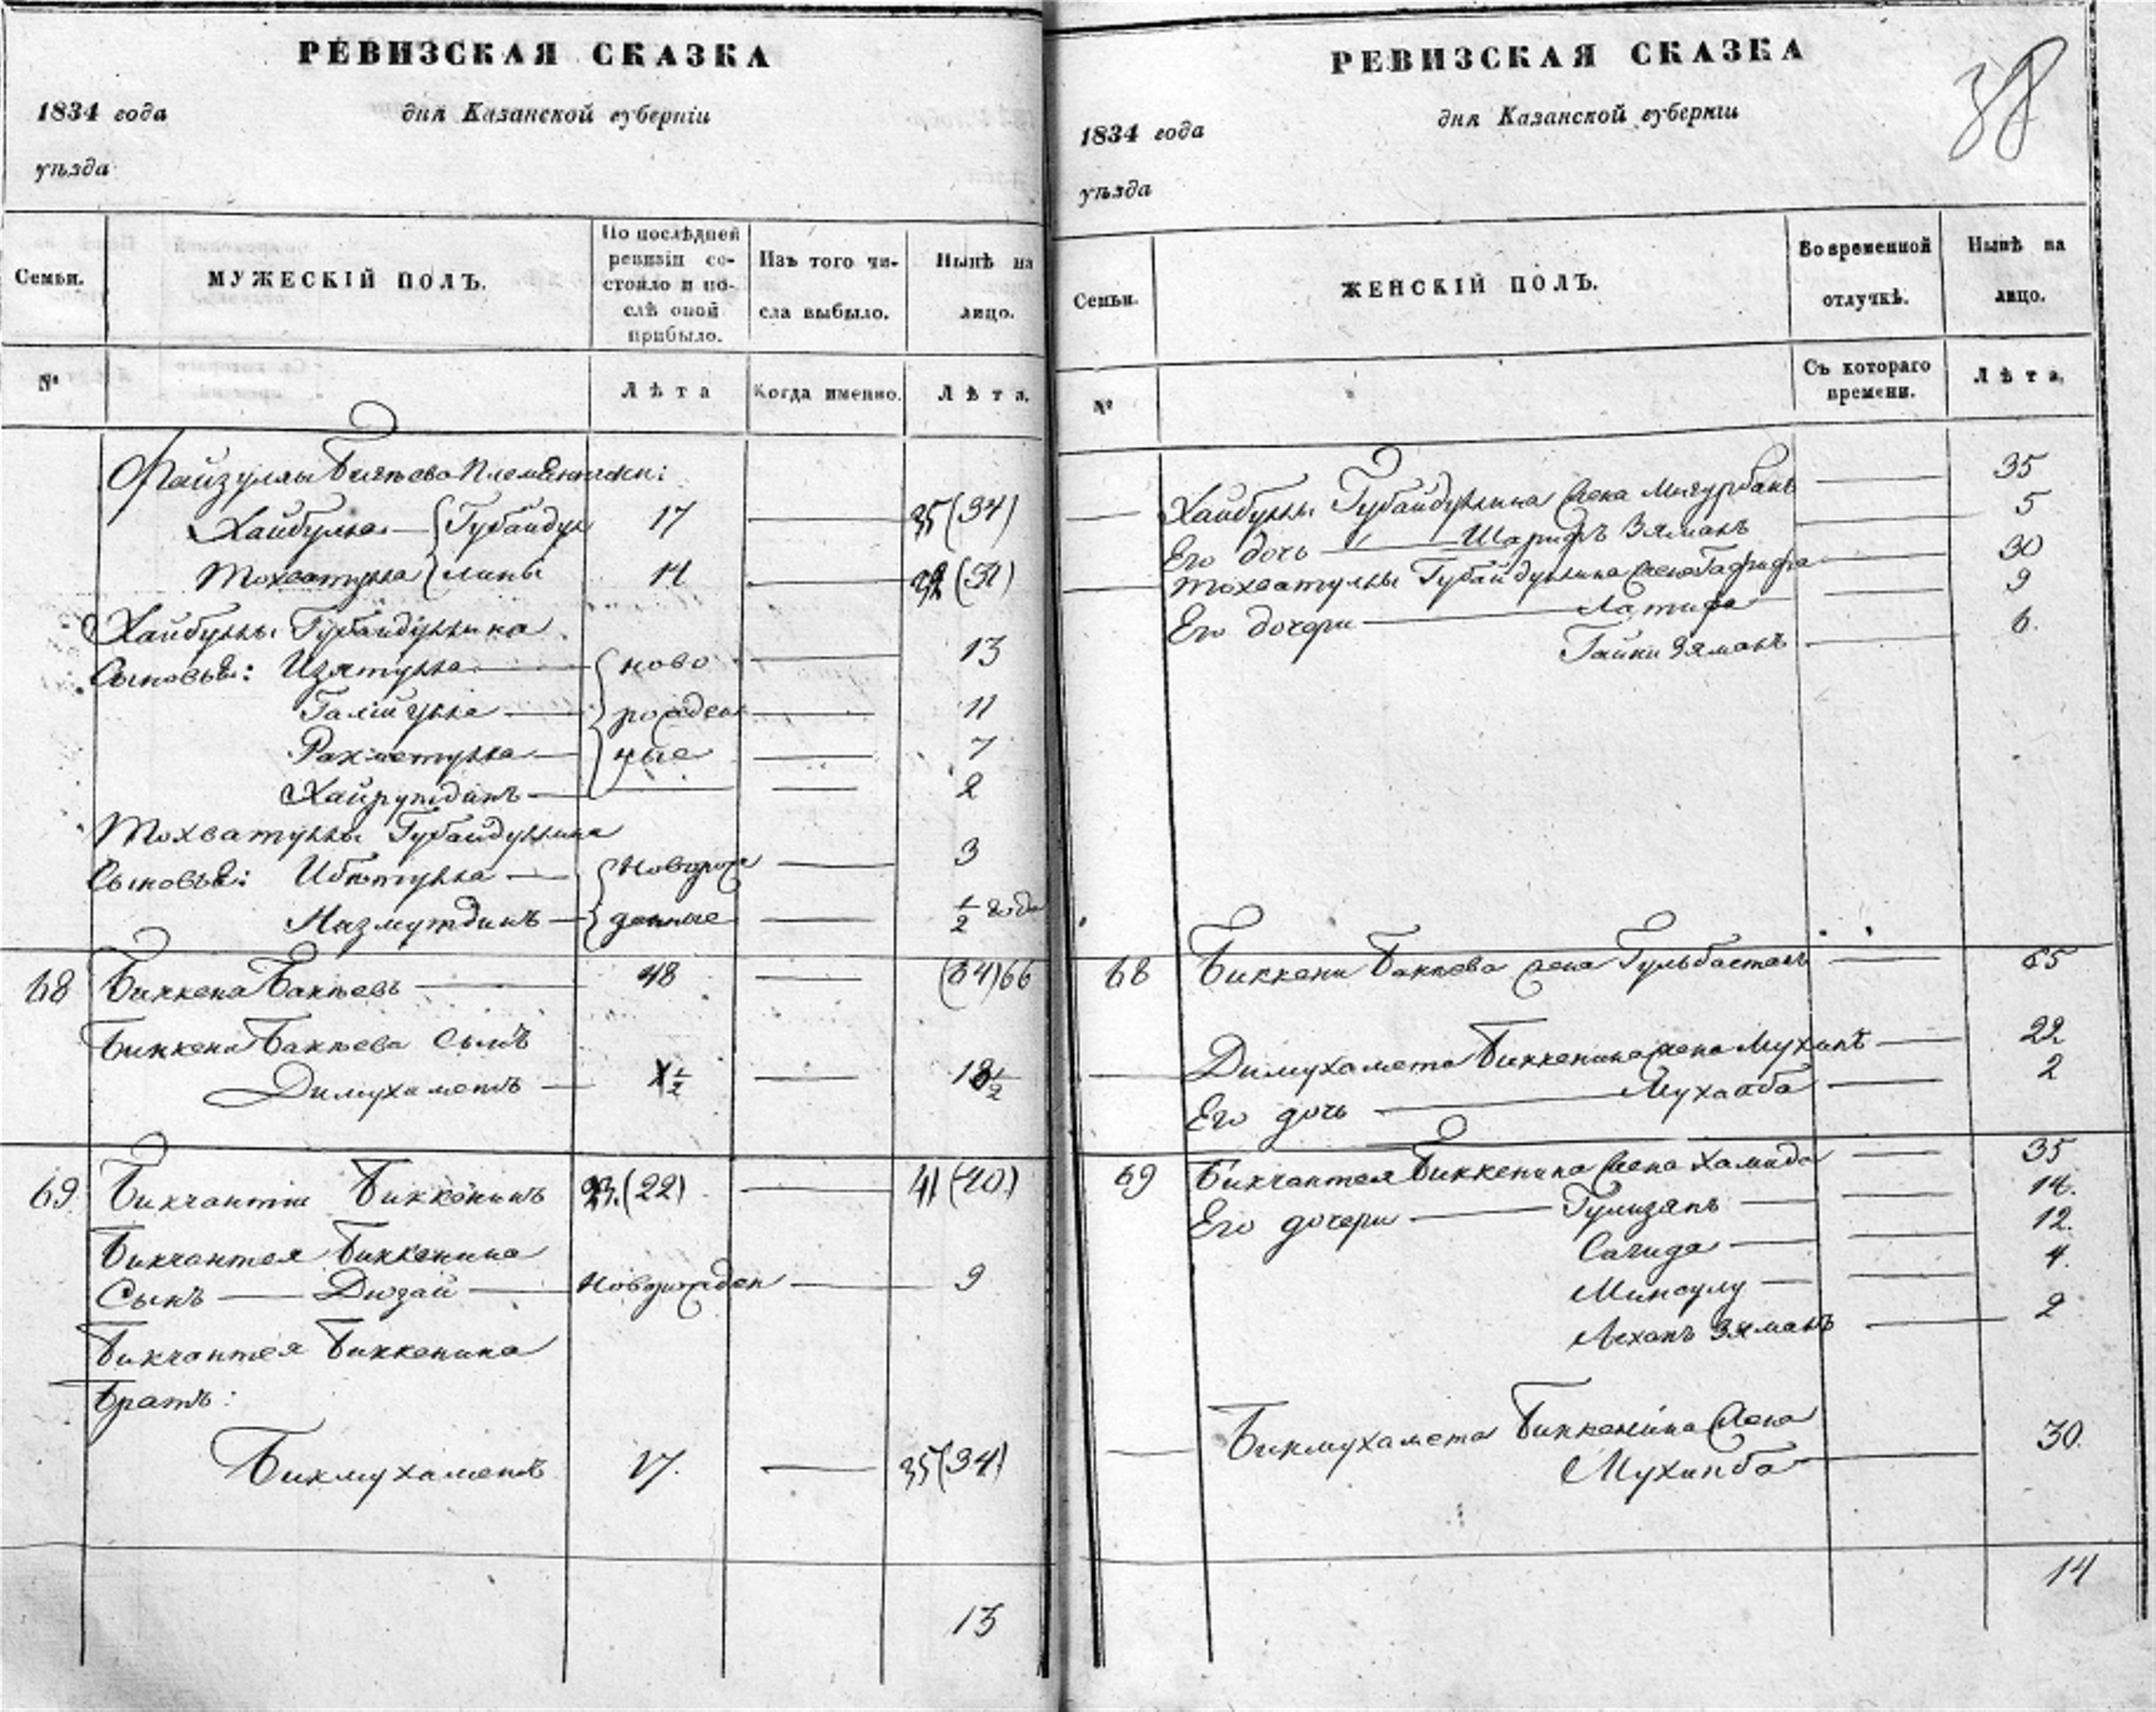 РЕВИЗСКАЯ СКАЗКА
1834 года дня Казанской губерніи
уѣзда
Семьи. МУЖЕСКІЙ ПОЛЪ. По послѣдней ревизіи состояло и послѣ оной прибыло. Изъ того числа выбыло. Нынѣ на лицо.
№ Лѣта Когда именно. Лѣта.
Файзуллы Племянники:
Хайбулла — { Губайдул 17 — 35 (34)
Мохватулла { лины 14 —
Хайбуллы Губайдуллина
Сыновья: Изятулла — { ново — 13
Галіулла — { рожден — 11
Рахметулла — { ные — 7
Хайрутдинъ — — 2
Мохватуллы Губайдуллина
Сыновья: — { Новорож — 3
Назмутдинъ — { денные — 1/2 года
68 Биккеня Бакѣевъ — 48 — (64) 66
Биккени Бакѣева сынъ
Димухаметъ — 1/2 — 18 1/2
69 Бикчантаи Биккенинъ 23. (22) — 41 (40)
Бикчантая Биккенина
Сынъ — Дизай — Новорожден — 9
Бикчантая Биккенина
Братъ:
Бикмухаметъ 17. — 35 (34)
13
РЕВИЗСКАЯ СКАЗКА
38
1834 года дня Казанской губерніи
уѣзда
Семьи. ЖЕНСКІЙ ПОЛЪ. Во временной отлучкѣ. Нынѣ на лицо.
№ Съ котораго времени. Лѣта.
— Хайбуллы Губайдуллина жена — 35
Его дочь — Шарифъ Зяманъ — 5
— Мохватуллы Губайдуллина жена Гафифа — 30
Его дочери — Латифа — 9
Зяманъ — 6.
68 Биккени Бакѣева жена Гульбостанъ — 65
— Димухамета Биккенина жена — 22.
Его дочь — — 2
69 Бикчантая Биккенина жена Хамида — 35
Его дочери — Гулизянъ — 14.
Сагида — — 12.
Минсулу — — 4.
Зяманъ — 2
— Бикмухамета Биккенина жена
— 30.
14